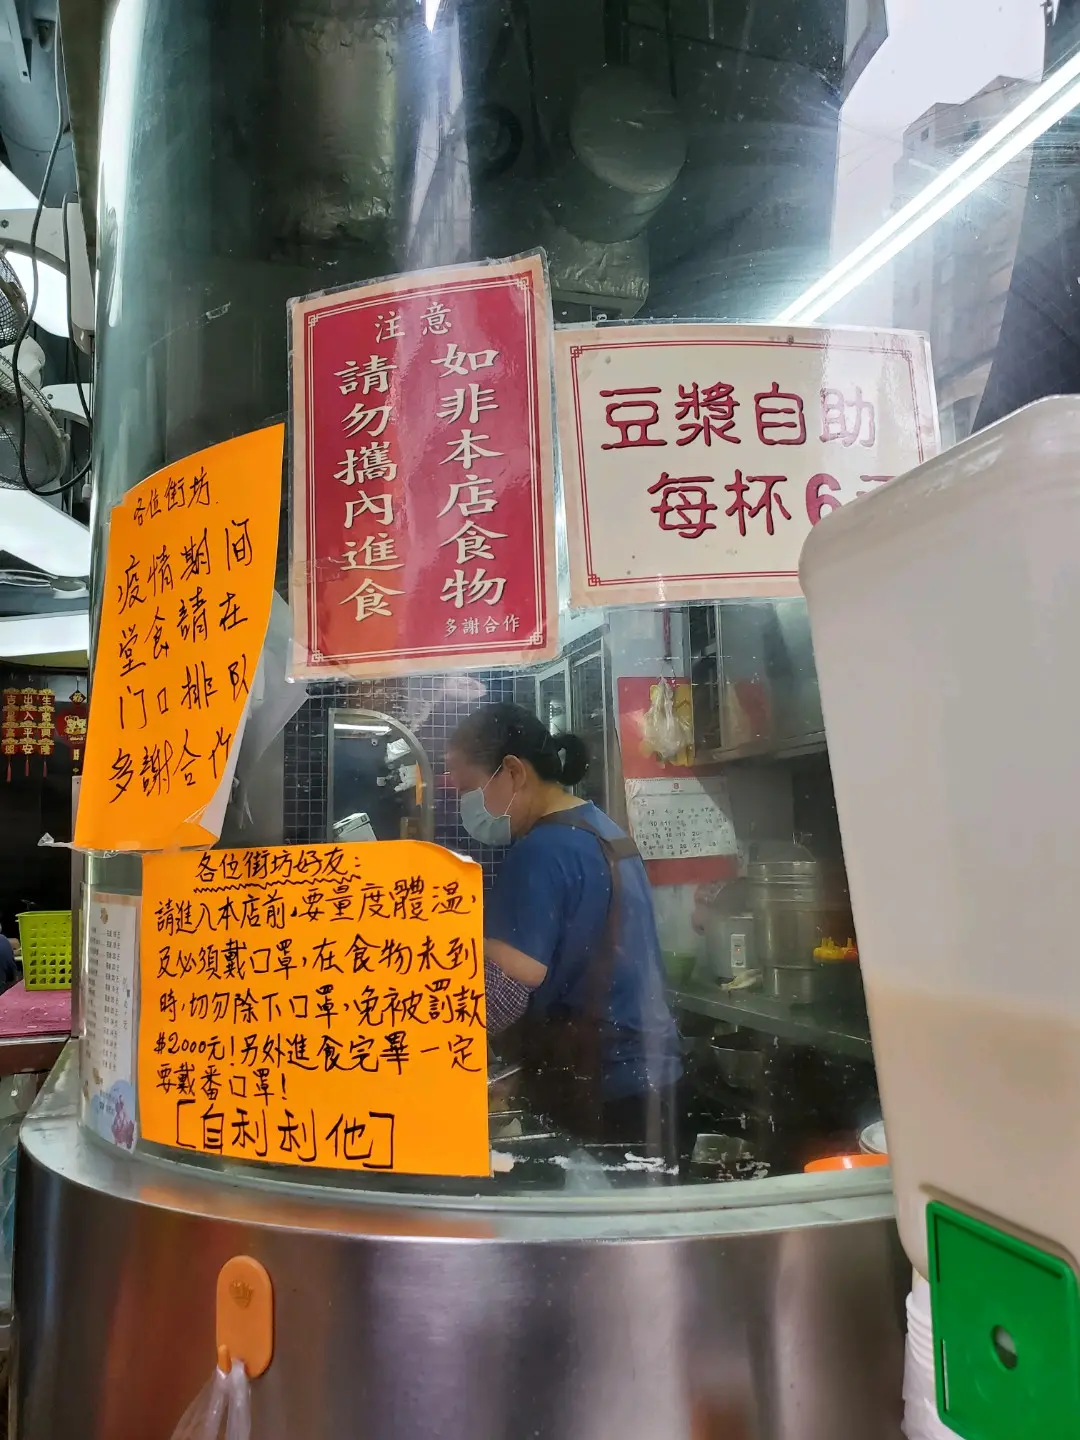 注意
如非本店食物
請勿攜內進食
多謝合作
豆漿自助
每杯6
各位街坊.
疫情期间
堂食請在
门口排队
多謝合作
各位街坊好友:
請進入本店前,要量度體溫,
及必須戴口罩,在食物未到
時,切勿除下口罩,免被罰款
$2000元!另外進食完畢一定
要戴番口罩!
[自利利他]
出入平安